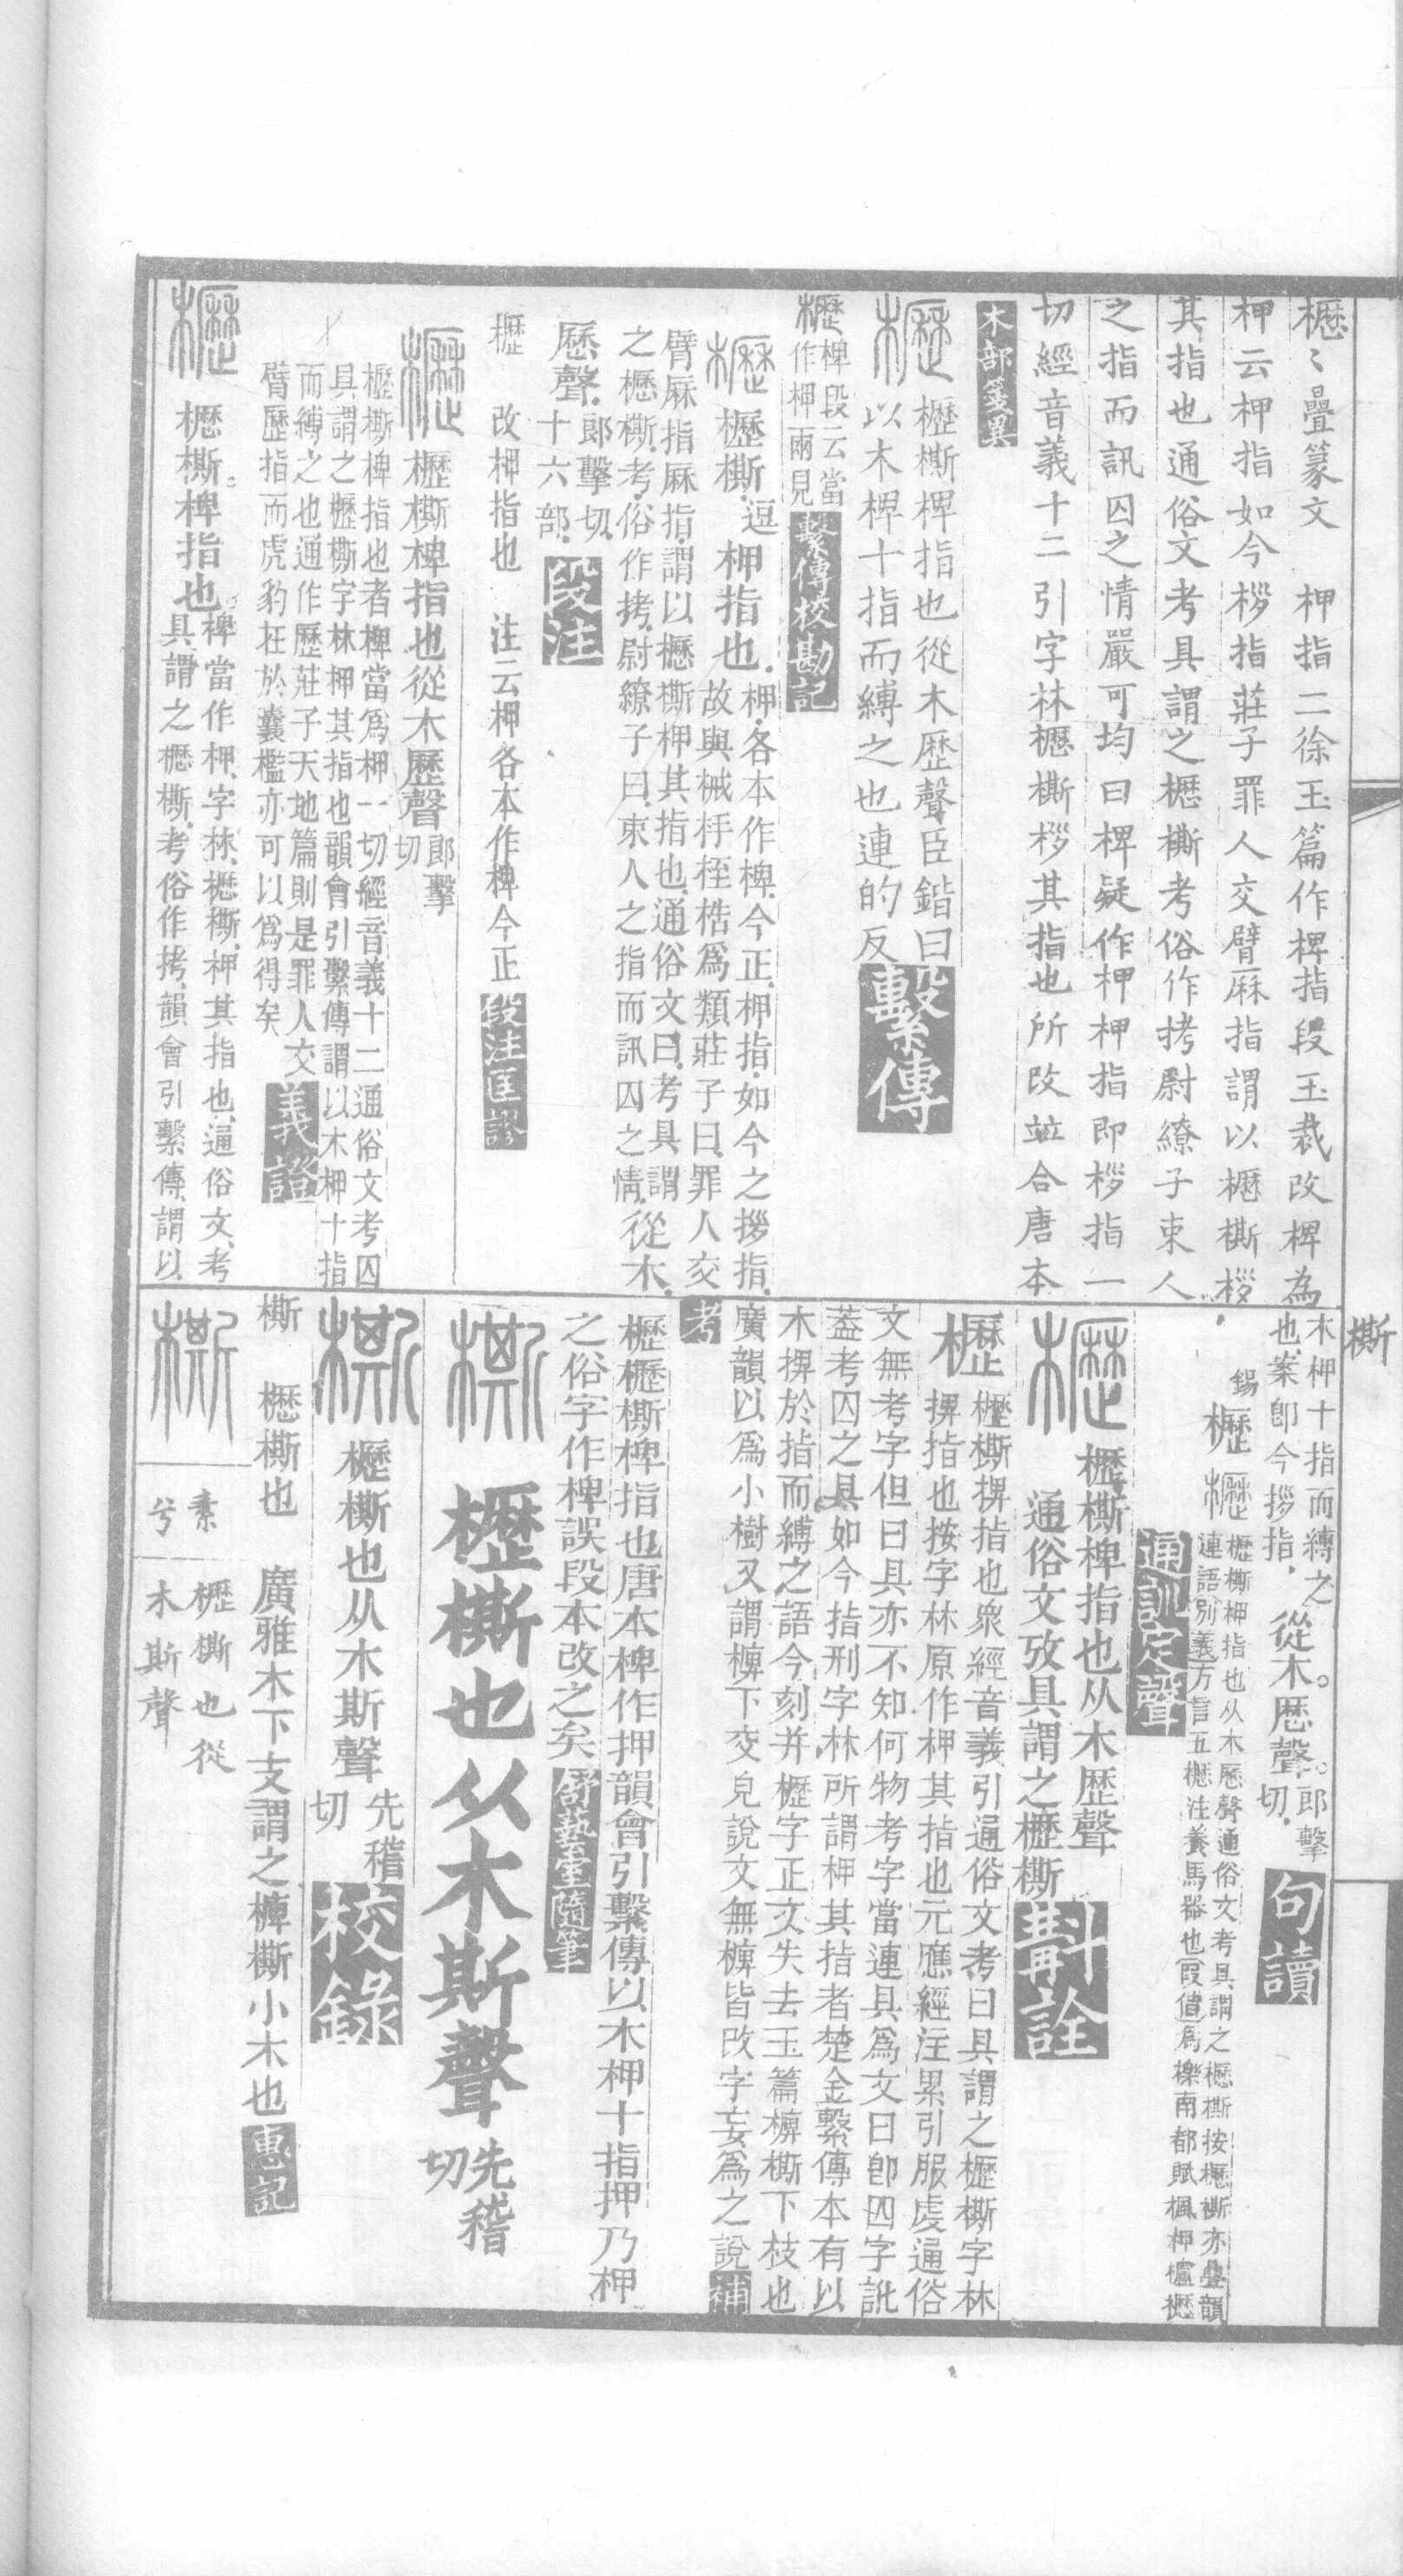 櫪〻疊篆文　柙指二徐玉篇作椑指段玉裁改椑為
柙云柙指如今桚指莊子罪人交臂厤指謂以櫪㯕桚
其指也通俗文考具謂之櫪㯕考俗作拷尉繚子束人
之指而訊囚之情嚴可均曰椑疑作柙柙指即桚指一
切經音義十二引字林櫪㯕桚其指也所改竝合唐本
木部箋異
櫪櫪㯕椑指也從木歴聲臣鍇曰
以木椑十指而縛之也連的反繫傳
櫪椑段云當
作柙兩見繫傳校勘記
櫪櫪㯕逗柙指也柙各本作椑今正柙指如今之拶指
故與械杽桎梏爲類莊子曰罪人交
臂厤指厤指謂以櫪㯕柙其指也通俗文曰考具謂
之櫪㯕考俗作拷尉繚子曰束人之指而訊囚之情從木
厤聲郎擊切
十六部段注
櫪　改柙指也　注云柙各本作椑今正段注匡謬
櫪櫪㯕椑指也從木歷聲郎擊
切
櫪㯕椑指也者椑當爲柙一切經音義十二通俗文考囚
具謂之櫪㯕字林柙其指也韻會引繫傳謂以木柙十指
而縛之也通作歷莊子天地篇則是罪人交
臂歷指而虎豹在於囊檻亦可以爲得矣義證
櫪櫪㯕椑指也椑當作柙字林櫪㯕柙其指也通俗文考
具謂之櫪㯕考俗作拷韻會引繫傳謂以
㯕
木柙十指而縛之
也案卽今拶指從木歷聲郎擊
切句讀
錫櫪櫪櫪㯕柙指也从木厤聲通俗文考具謂之櫪㯕按櫪㯕亦疊韻
連語別義方言五櫪注養馬器也叚借爲櫟南都賦楓柙櫨櫪
通訓定聲
櫪櫪㯕椑指也从木歴聲
通俗文攷具謂之櫪㯕斠詮
櫪櫪㯕椑指也衆經音義引通俗文考曰具謂之櫪㯕字林
椑指也按字林原作柙其指也元應經注累引服虔通俗
文無考字但曰具亦不知何物考字當連具爲文曰卽囚字訛
葢考囚之具如今指刑字林所謂柙其指者楚金繫傳本有以
木椑於指而縛之語今刻并櫪字正文失去玉篇㯕下枝也
廣韻以爲小樹又謂㯅下交皃說文無㯅皆改字妄爲之說補
考
櫪櫪㯕椑指也唐本椑作押韻會引繫傳以木柙十指押乃柙
之俗字作椑誤段本改之矣舒藝室隨筆
㯕櫪㯕也从木斯聲先稽
切
㯕櫪㯕也从木斯聲先稽
切校錄
㯕　櫪㯕也　廣雅木下支謂之㯅㯕小木也惠記
㯕素　櫪㯕也從
兮　木斯聲